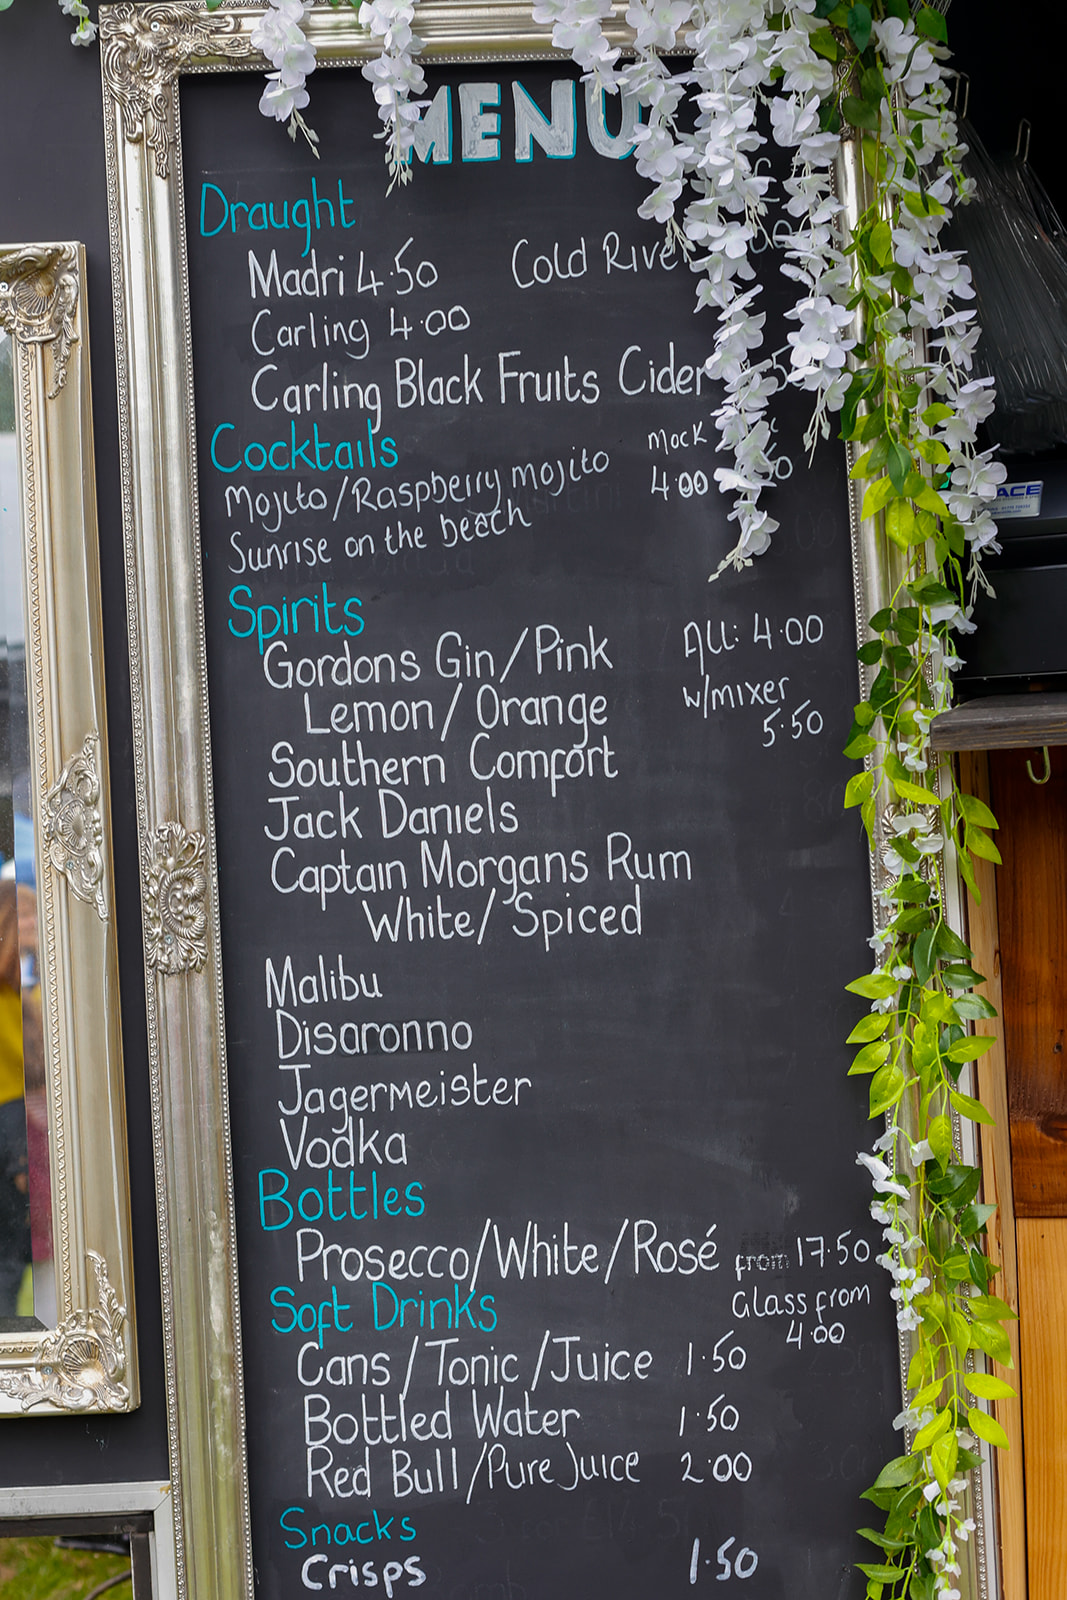 MENU
Draught
Madri 4.50 Cold River
Carling 4.00
Carling Black Fruits Cider
Cocktails mock
Mojito/Raspberry mojito 4.00
Sunrise on the beach
Spirits
Gordons Gin/Pink ALL: 4.00
Lemon/Orange w/mixer
5.50
Southern Comfort
Jack Daniels
Captain Morgans Rum
White/Spiced
Malibu
Disaronno
Jagermeister
Vodka
Bottles
Prosecco/White/Rosé from 17.50
Soft Drinks Glass from
4.00
Cans/Tonic/Juice 1.50
Bottled Water 1.50
Red Bull/Pure Juice 2.00
Snacks
Crisps 1.50